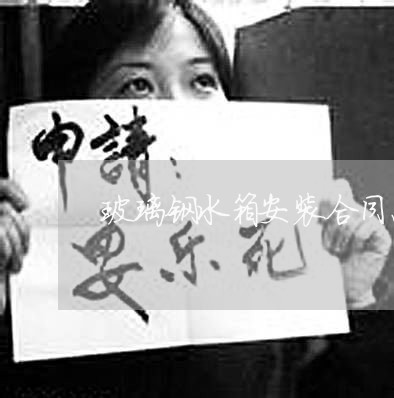 申請：
玻璃钢水箱安装合同、
要乐死